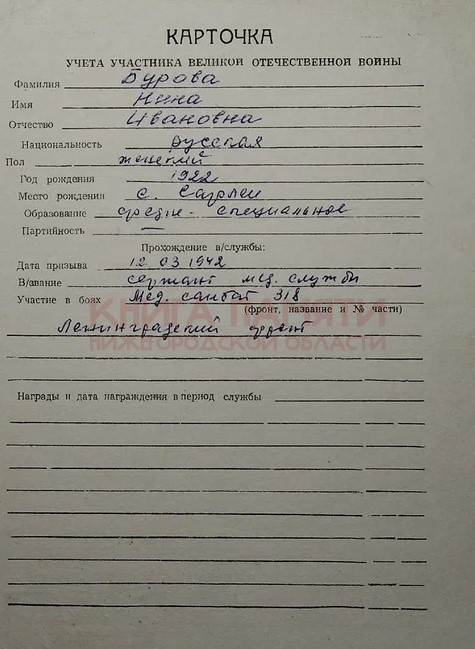 КАРТОЧКА
УЧЕТА УЧАСТНИКА ВЕЛИКОЙ ОТЕЧЕСТВЕННОЙ ВОЙНЫ
Фамилия Бурова
Имя Нина
Отчество Ивановна
Национальность русская
Пол женский
Год рождения 1922
Место рождения с. Сарлеи
Образование средне-специальное
Партийность —
Прохождение в/службы:
Дата призыва 12 03 1942
В/звание сержант мед. службы
Участие в боях Мед. санбат 318
(фронт, название и № части)
КНИГА ПАМЯТИ
Ленинградский фронт
НИЖЕГОРОДСКОЙ ОБЛАСТИ
Награды и дата награждения в период службы